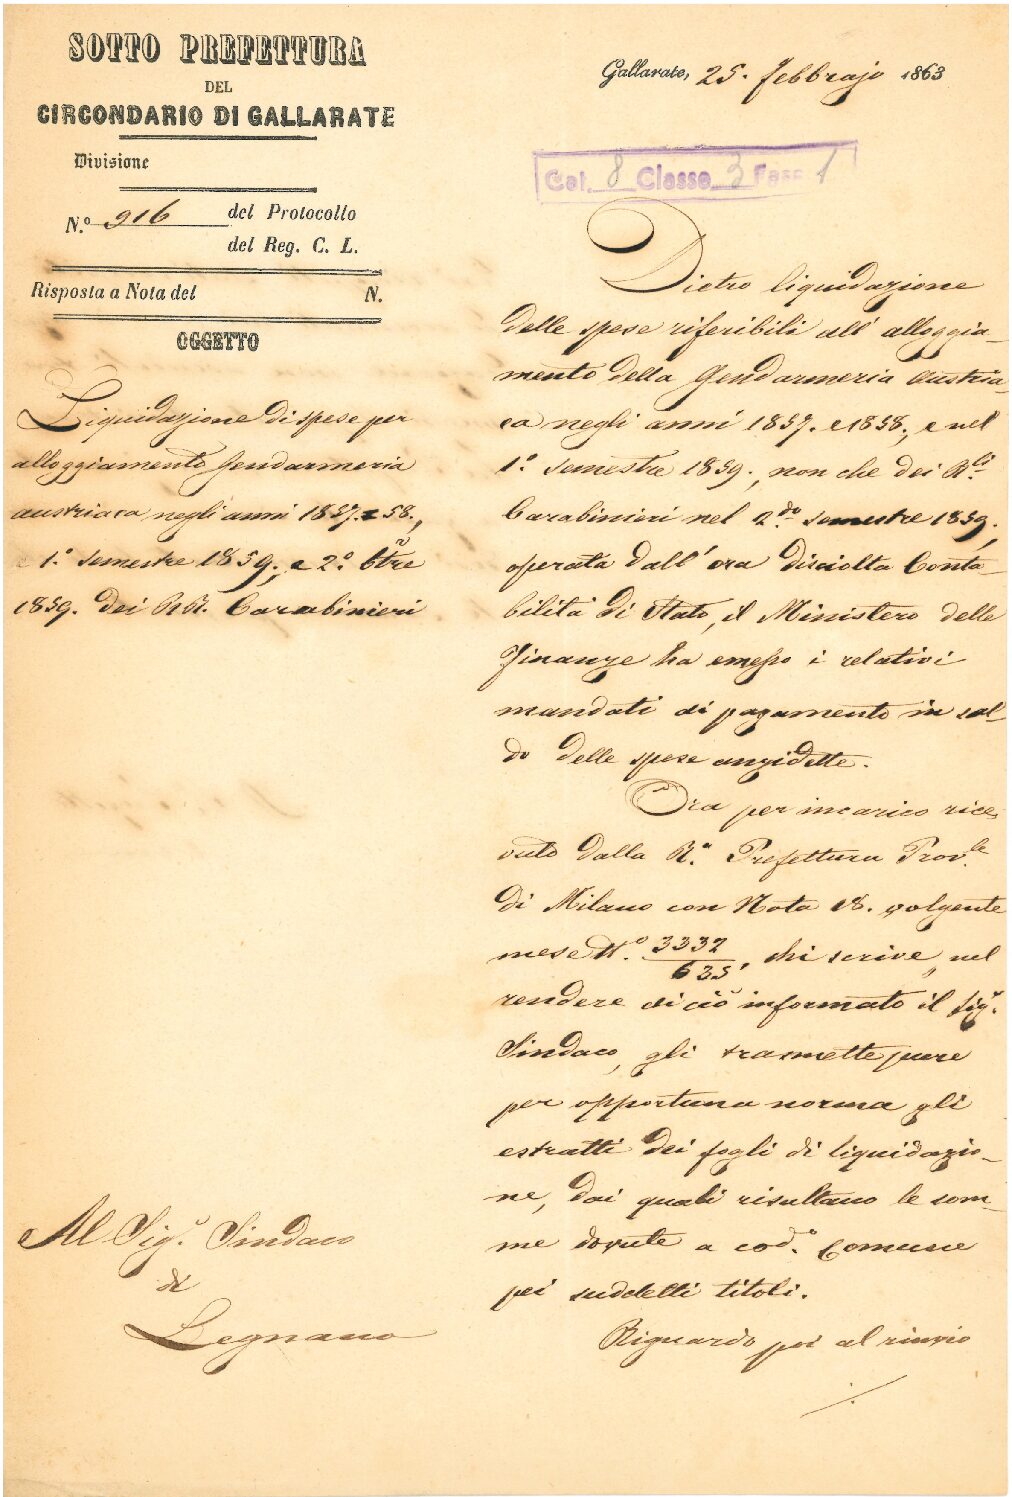 SOTTO PREFETTURA
DEL
CIRCONDARIO DI GALLARATE
Divisione
N.º 916 del Protocollo
del Reg. C. L.
Risposta a Nota del N.
OGGETTO
Liquidazione di spese per
alloggiamento Gendarmeria
austriaca negli anni 1857. e 58.,
e 1.º semestre 1859., e 2.º Stre
1859. dei RR. Carabinieri
Al Sig.r Sindaco
di
Legnano
Gallarate, 25. Febbrajo 1863
Cat. 8 Classe 3 Fasc 1
Dietro liquidazione
delle spese riferibili all' alloggia-
mento della Gendarmeria Austria
ca negli anni 1857. e 1858., e nel
1.º semestre 1859., non che dei R.li
Carabinieri nel 2.do semestre 1859.,
operata dall' ora disciolta Conta-
bilità di Stato, il Ministero delle
Finanze ha emesso i relativi
mandati di pagamento in sal-
do delle spese anzidette.
Ora per incarico rice-
vuto dalla R.a Prefettura Prov.le
di Milano con Nota 18. volgente
mese N.º 3332/635, chi scrive, nel
rendere di ciò informato il Sig.r
Sindaco, gli trasmette pure
per opportuna norma gli
estratti dei fogli di liquidazio-
ne, dai quali risultano le som-
me dovute a cod.º Comune
pei suddetti titoli.
Riguardo poi al rinvio